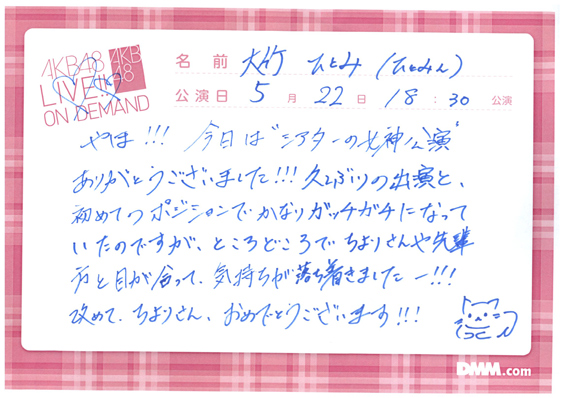 AKB48
LIVE!!
ON DEMAND
AKB
48
名前 大竹 ひとみ (ひとみん)
公演日 5月22日 18:30 公演
やほ!!! 今日は"シアターの女神公演"
ありがとうございました!!! 久しぶりの出演と、
初めてのポジションでかなりガッチガチになって
いたのですが、ところどころでちよりさんや先輩
方と目が合って、気持ちが落ち着きましたー!!!
改めて、ちよりさん、おめでとうございます!!!
DMM.com